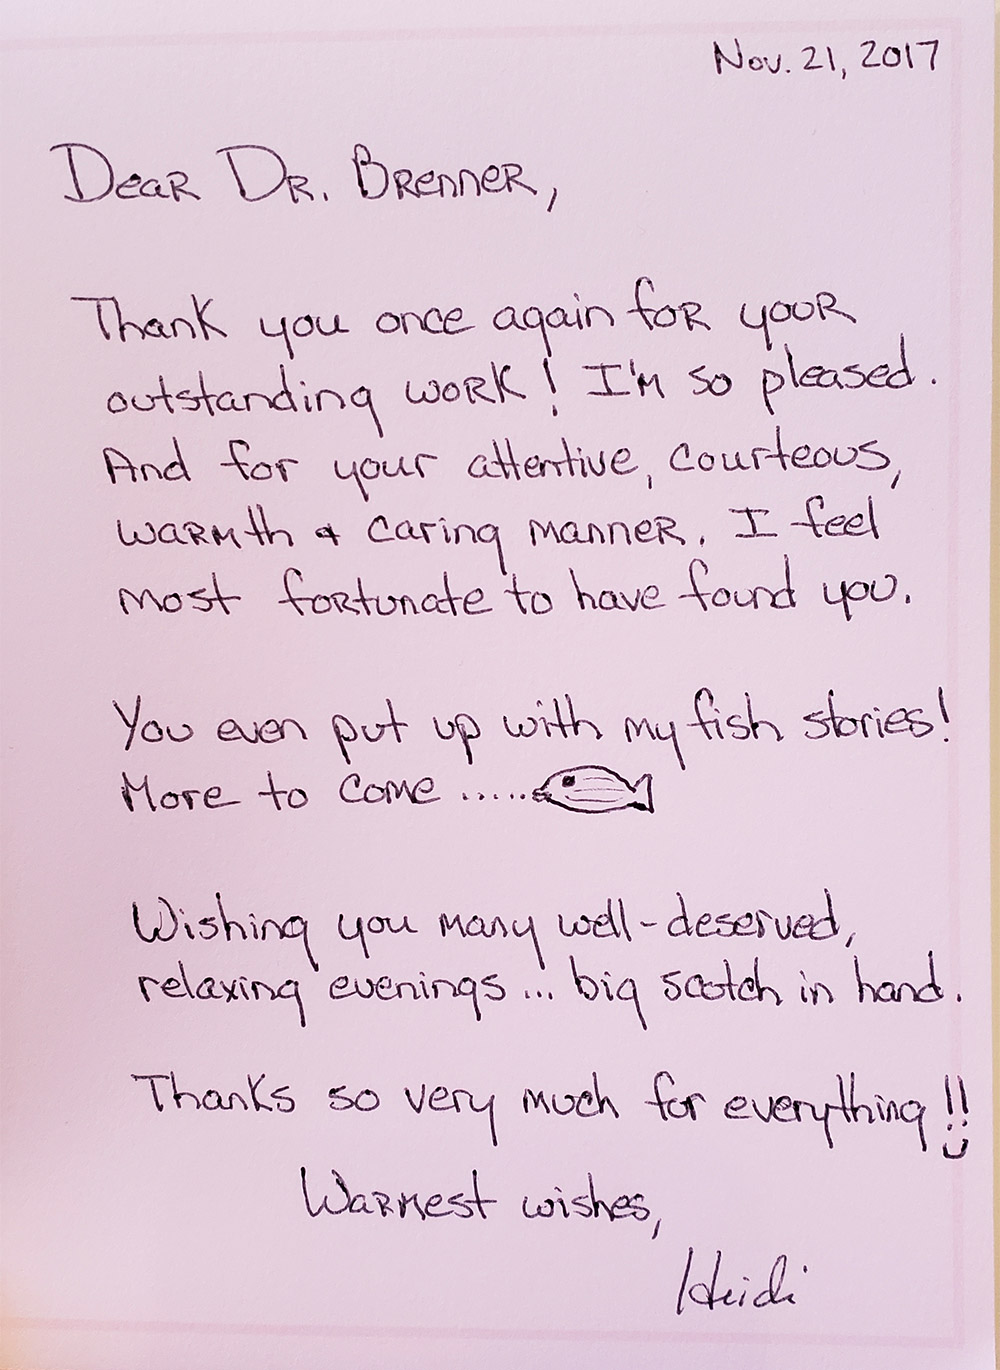 Nov. 21, 2017
Dear Dr. Brenner,
Thank you once again for your
outstanding work! I'm so pleased.
And for your attentive, courteous,
warmth & caring manner. I feel
most fortunate to have found you.
You even put up with my fish stories!
More to come .....
Wishing you many well-deserved,
relaxing evenings... big scotch in hand.
Thanks so very much for everything!!
Warmest wishes,
Heidi